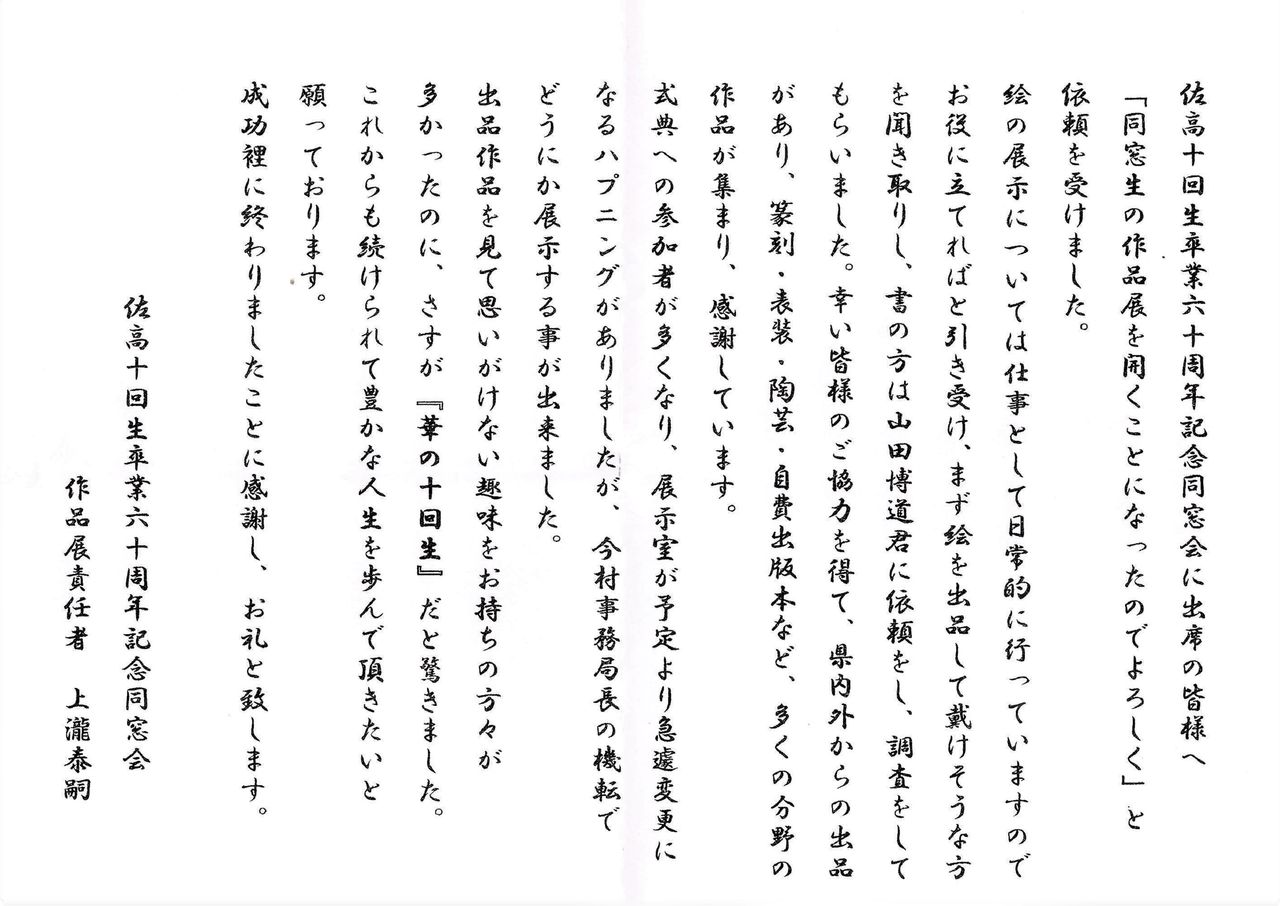 佐高十回生卒業六十周年記念同窓会に出席の皆様へ
「同窓生の作品展を開くことになったのでよろしく」と
依頼を受けました。
絵の展示については仕事として日常的に行っていますので
お役に立てればと引き受け、まず絵を出品して戴けそうな方
を聞き取りし、書の方は山田博道君に依頼をし、調査をして
もらいました。幸い皆様のご協力を得て、県内外からの出品
があり、篆刻・表装・陶芸・自費出版本など、多くの分野の
作品が集まり、感謝しています。
式典への参加者が多くなり、展示室が予定より急遽変更に
なるハプニングがありましたが、今村事務局長の機転で
どうにか展示する事が出来ました。
出品作品を見て思いがけない趣味をお持ちの方々が
多かったのに、さすが『華の十回生』だと驚きました。
これからも続けられて豊かな人生を歩んで頂きたいと
願っております。
成功裡に終わりましたことに感謝し、お礼と致します。
佐高十回生卒業六十周年記念同窓会
作品展責任者　上瀧泰嗣